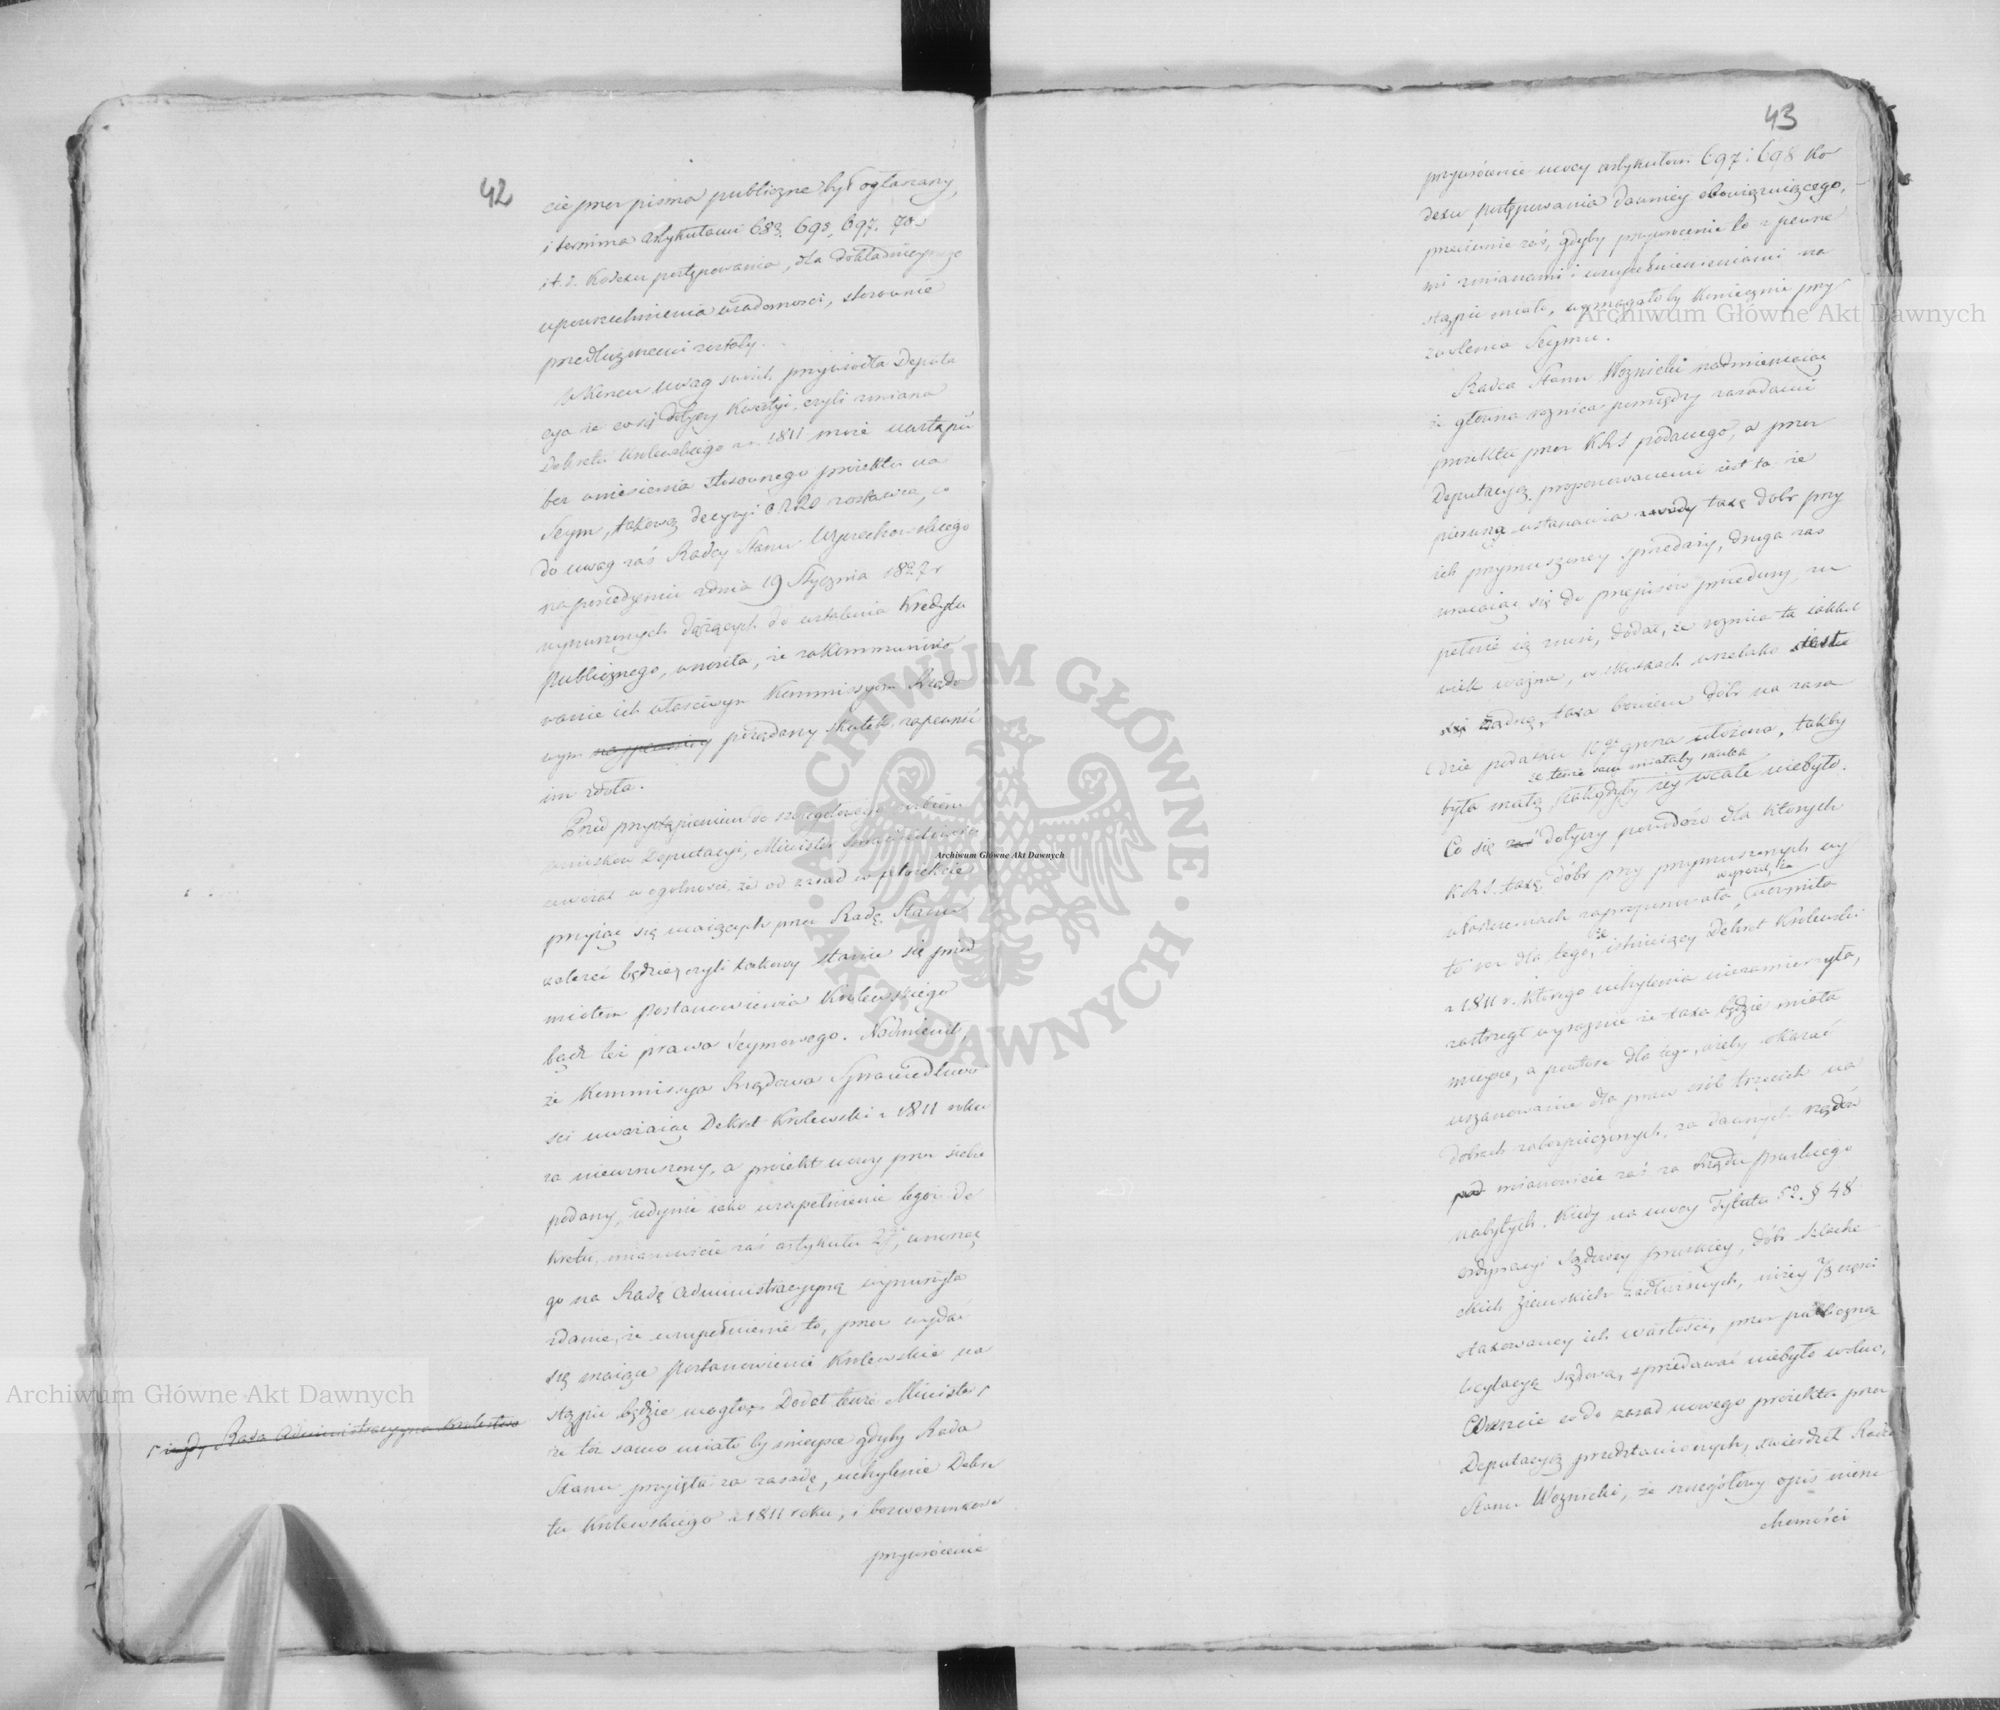 42
cie przez pisma publiczne był ogłaszany,
i termina artykułami 683. 695, 697. 703
i t. d. Kodexu postępowania, dla dokładnieyszego
upowszechnienia wiadomości, stosownie
przedłużonemi zostały.
W Koncu uwag swoich przywiodła Deputa
cya że co się dotyczy kwestyi, czyli zmiana
Dekretu Krolewskiego z r. 1811 może nastąpić
bez wniesienia stosownego proiektu na
Seym, takową decyzyi KRS zostawia, co
do uwag zaś Radcy Stanu Wyczechowskiego
na posiedzeniu z dnia 19 Stycznia 1827 r
wynurzonych dążących do ustalenia Kredytu
publicznego, wnosiła, że zakommuniko
wanie ich właściwym Kommissyom Rządo
wym pożądany skutek zapewnić
im zdoła.
Przed przystąpieniem do szczegółowego rozbioru
wniosków Deputacyi, Minister Sprawiedliwości
uważał w ogólności, że od zasad w proiekcie
przyiąć się maiących przez Radę Stanu
zależeć będzie, czyli takowy stanie się przed
miotem postanowienia Krolewskiego
bądź też prawa Seymowego. Nadmienił,
że Kommissya Rządowa Sprawiedliwo
ści uważaiąc Dekret Krolewski z 1811 roku
za niewzruszony, a proiekt nowy przez siebie
podany, iedynie iako uzupełnienie tegoż De
kretu, mianowicie zaś artykułu 2go, wnosząc
go na Radę Administracyiną wynurzyła
zdanie, że uzupełnienie to, przez wydać
się maiące postanowienie Krolewskie na
stąpić będzie mogło. Dodał tenże Minister
że toż samo miało by mieysce gdyby Rada
Stanu przyięła za zasadę, uchylenie Dekre
tu Krolewskiego z 1811 roku, i bezwarunkowe
przywrócenie
Rada Administracyyna Krolestwa
43
przywrócenie mocy artykułom 697 i 698 Ko
dexu postępowania dawniey obowiązuiącego,
przeciwnie zaś, gdyby przywrocenie to z pewne
mi zmianami i uzupełnieniami na
stąpić miało, wymagałoby koniecznie przy
zwolenia Seymu.
Radca Stanu Woznicki nadmieniaiąc
iż główna roznica pomiędzy zasadami
proiektu przez KRS podanego, a przez
Deputacyą proponowanemi iest ta że
pierwsza ustanawia taxę dobr przy
ich przymuszoney sprzedaży, druga zaś
wracaiąc się do przepisów procedury, zu
pełnie ią znosi, dodał, że roznica ta iakkol
wiek ważna, w skutkach wszelako iest
żadną, taxa bowiem dóbr na zasa
dzie podatku 10go grosza ułożona, takby
była małą, że tenże sam miałaby skutek
iak gdyby iey wcale niebyło.
Co się dotyczy powodów dla których
KRS. taxę dóbr przy przymuszonych wy
właszczeniach zaproponowała, uczyniła
to raz dla tego, że istnieiący Dekret Krolewski
z 1811 r. którego uchylenia niezamierzyła,
zastrzegł wyraźnie że taxa będzie miała
mieysce, a powtóre dla tego, ażeby okazać
uszanowanie dla praw osób trzecich na
dobrach zabezpieczonych, za dawnych rządów
mianowicie zaś za Rządu pruskiego
nabytych. Kiedy na mocy Tytułu 52. § 48
ordynacyi Sądowey pruskiey, dóbr szlache
ckich ziemskich zadłużonych, niżey 2/3 części
otaxowaney ich wartości, przez publiczną
licytacyą sądową, sprzedawać niebyło wolno.
Wreszcie co do zasad nowego proiektu przez
Deputacyą przedstawionych, twierdził Radca
Stanu Woznicki, że szczegółowy opis nieru
chomości